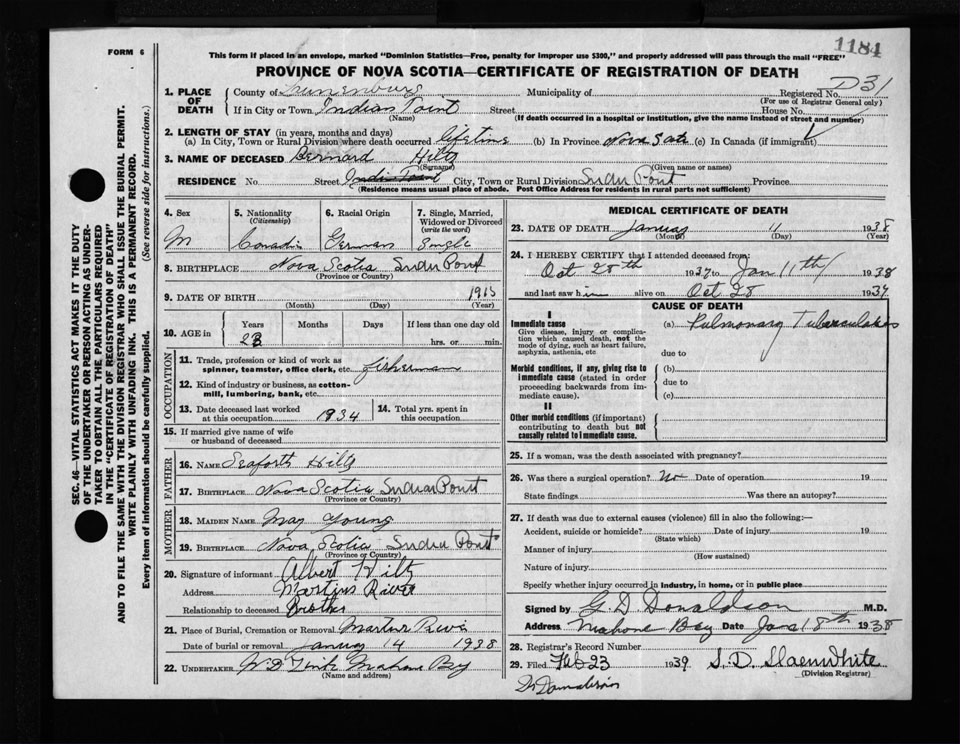 FORM 6
1184
This form if placed in an envelope, marked "Dominion Statistics—Free, penalty for improper use $300," and properly addressed will pass through the mail "FREE"
PROVINCE OF NOVA SCOTIA—CERTIFICATE OF REGISTRATION OF DEATH
D31
1. PLACE OF DEATH County of Lunenburg Municipality of Registered No.
(For use of Registrar General only)
If in City or Town Indian Point Street House No.
(Name) (If death occurred in a hospital or institution, give the name instead of street and number)
2. LENGTH OF STAY (in years, months and days)
(a) In City, Town or Rural Division where death occurred lifetime (b) In Province Nova Scotia (c) In Canada (if immigrant)
3. NAME OF DECEASED Bernard Hiltz
(Surname) (Given name or names)
RESIDENCE No. Street Indian Point City, Town or Rural Division Indian Point Province
(Residence means usual place of abode. Post Office Address for residents in rural parts not sufficient)
SEC. 46—VITAL STATISTICS ACT MAKES IT THE DUTY
OF THE UNDERTAKER OR PERSON ACTING AS UNDER-
TAKER TO OBTAIN ALL THE PARTICULARS REQUIRED
IN THE "CERTIFICATE OF REGISTRATION OF DEATH"
AND TO FILE THE SAME WITH THE DIVISION REGISTRAR WHO SHALL ISSUE THE BURIAL PERMIT.
WRITE PLAINLY WITH UNFADING INK. THIS IS A PERMANENT RECORD.
Every item of information should be carefully supplied. (See reverse side for instructions.)
4. Sex 5. Nationality 6. Racial Origin 7. Single, Married,
(Citizenship) Widowed or Divorced
(write the word)
M Canadian German Single
8. BIRTHPLACE Nova Scotia Indian Point
(Province or Country)
9. DATE OF BIRTH 1915
(Month) (Day) (Year)
10. AGE in Years Months Days If less than one day old
23 hrs. or min.
OCCUPATION
11. Trade, profession or kind of work as
spinner, teamster, office clerk, etc. fisherman
12. Kind of industry or business, as cotton-
mill, lumbering, bank, etc.
13. Date deceased last worked
at this occupation 1934
14. Total yrs. spent in
this occupation
15. If married give name of wife
or husband of deceased
FATHER
16. NAME Seaforth Hiltz
17. BIRTHPLACE Nova Scotia Indian Point
(Province or Country)
MOTHER
18. MAIDEN NAME May Young
19. BIRTHPLACE Nova Scotia Indian Point
(Province or Country)
20. Signature of informant Albert Hiltz
Address Martins River
Relationship to deceased Brother
21. Place of Burial, Cremation or Removal Martins River
Date of burial or removal January 14 1938
22. UNDERTAKER Mahone Bay
(Name and address)
MEDICAL CERTIFICATE OF DEATH
23. DATE OF DEATH January 11 1938
(Month) (Day) (Year)
24. I HEREBY CERTIFY that I attended deceased from:
Oct 28th 1937 to Jan 11th 1938
and last saw him alive on Oct 28 1937
CAUSE OF DEATH
I
Immediate cause (a) Pulmonary Tuberculosis
Give disease, injury or complica-
tion which caused death, not the
mode of dying, such as heart failure,
asphyxia, asthenia, etc
due to
Morbid conditions, if any, giving rise to (b)
immediate cause (stated in order due to
proceeding backwards from im-
mediate cause). (c)
II
Other morbid conditions (if important)
contributing to death but not
causally related to immediate cause.
25. If a woman, was the death associated with pregnancy?
26. Was there a surgical operation? No Date of operation 19
State findings Was there an autopsy?
27. If death was due to external causes (violence) fill in also the following:—
Accident, suicide or homicide? Date of injury 19
(State which)
Manner of injury
(How sustained)
Nature of injury
Specify whether injury occurred in industry, in home, or in public place
Signed by G. D. Donaldson M.D.
Address Mahone Bay Date Jan 18th 1938
28. Registrar's Record Number
29. Filed Feb 23 1939 S. D. Slaenwhite
(Division Registrar)